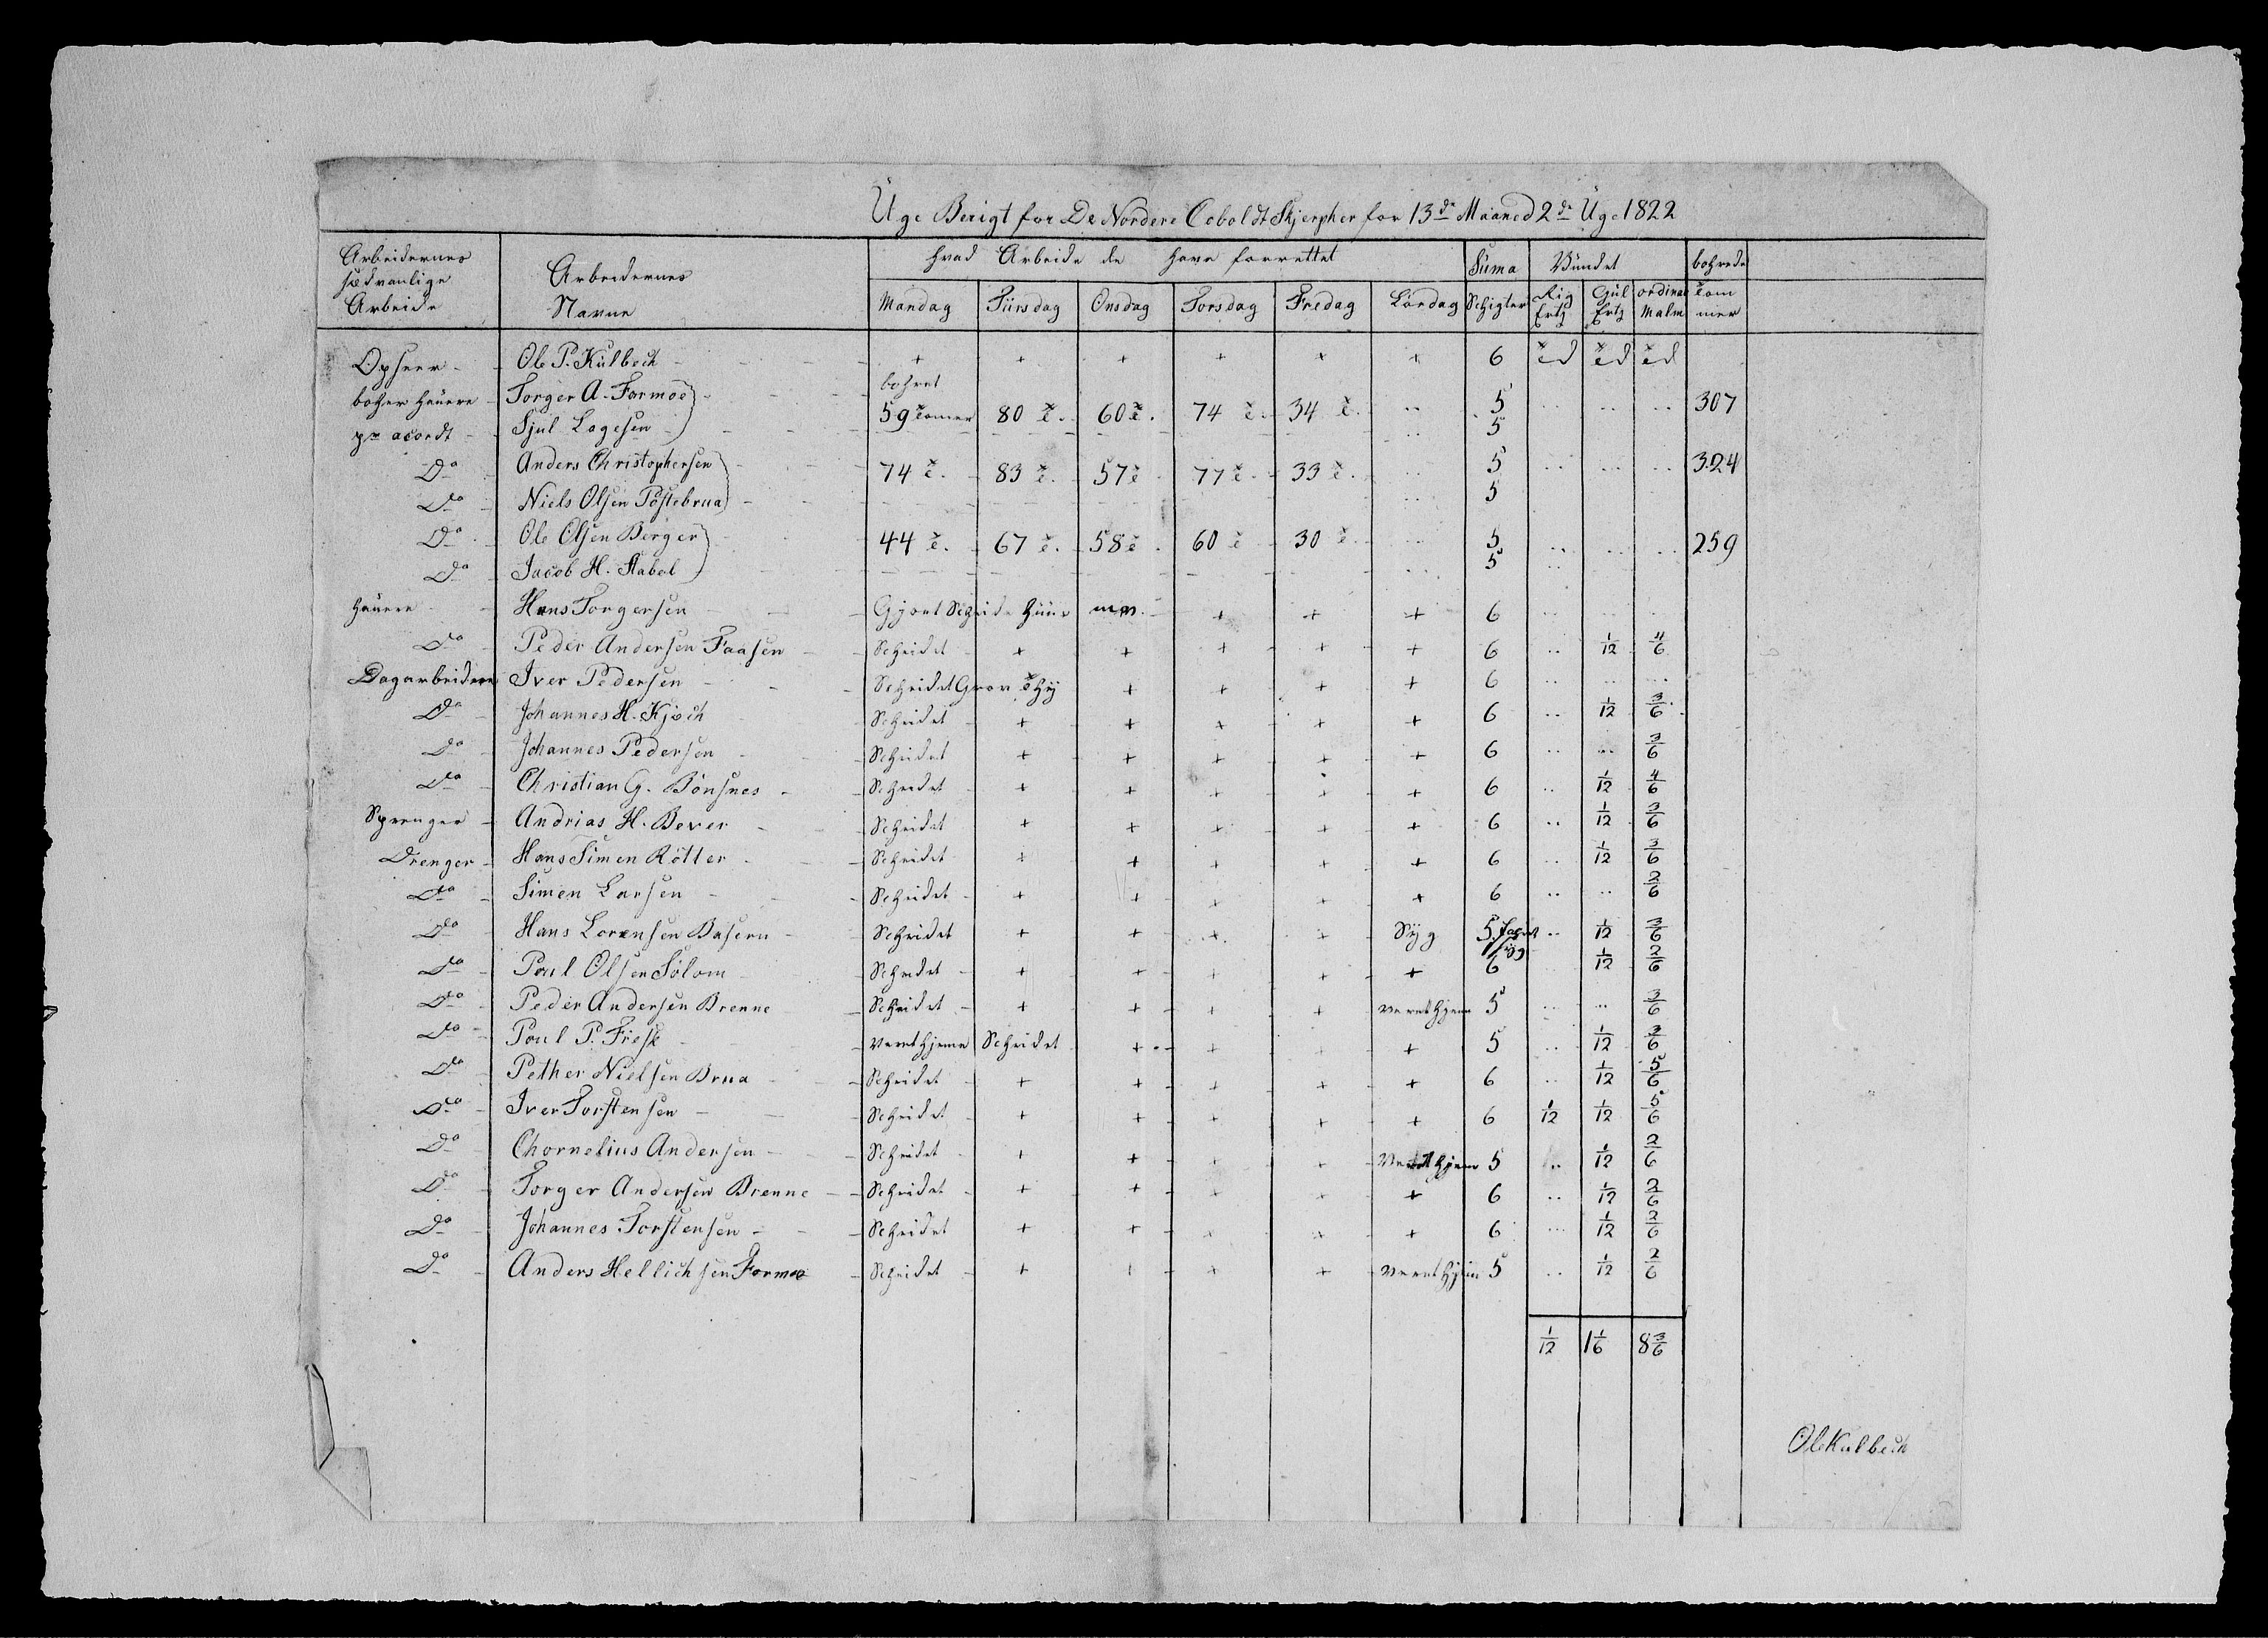 Uge Berigt for De Nordere Coboldt Skjerpher for 13de Maaned 2de Uge 1822
Arbeidernes sædvanlige Arbeide | Arbeidernes Navne | hvad Arbeide de have forrettet | Suma Schigter | Vundet | bohrede tommer
Mandag | Tiirsdag | Onsdag | Torsdag | Fredag | Lördag | Rig Ertz | Gul Ertz | ordinær Malm
Opseer | Ole P. Kulbech | + | + | + | + | + | + | 6
boher hauere | Torger A. Formoe | bohret 59 tommer | 80 t. | 60 t. | 74 t. | 34 t. | .. | 5 | .. | .. | .. | 307
pr acordt | Sjul Lagesen | .. | 5
Do | Anders Christophersen | 74 t. | 83 t. | 57 t | 77 t. | 33 t. | .. | 5 | .. | .. | .. | 324
Do | Niels Olsen Töstebrua | .. | 5
Do | Ole Olsen Berger | 44 t. | 67 t. | 58 t. | 60 t | 30 t. | .. | 5 | .. | .. | .. | 259
Do | Jacob H. Stabel | .. | 5 | ..
hauere | Hans Torgersen | Gjort Scheide Huus | + | + | + | 6 | .. | .. | ..
Do | Peder Andersen Faasen | Scheidet | + | + | + | + | + | 6 | .. | 1/12 | 4/6
Dagarbeidere | Iver Pedersen | Scheidet | + | + | + | + | 6 | .. | .. | ..
Do | Johannes H. Kjöch | Scheidet | + | + | + | + | + | 6 | .. | 1/12 | 3/6
Do | Johannes Pedersen | Scheidet | + | + | + | + | + | 6 | .. | .. | 3/6
Do | Christian G. Bönsnes | Scheidet | + | + | + | + | + | 6 | .. | 1/12 | 4/6
Sprenger | Andrias H. Bever | Scheidet | + | + | + | + | + | 6 | .. | 1/12 | 3/6
Drenger | Hans Simen Rötter | Scheidet | + | + | + | + | + | 6 | .. | 1/12 | 3/6
Do | Simen Larsen | Scheidet | + | + | + | + | + | 6 | .. | .. | 2/6
Do | Hans Lorensen Basern | Scheidet | + | + | + | + | Syg | 5 1 syg | .. | 1/12 | 3/6
Do | Poul Olsen Solom | Scheidet | + | + | + | + | + | 6 | 1/12 | 2/6
Do | Peder Andersen Brenne | Scheidet | + | + | + | + | veret hjeme | 5 | .. | .. | 3/6
Do | Poul P. Fresk | veret hjeme | Scheidet | + | + | + | + | 5 | .. | 1/12 | 3/6
Do | Pether Nielsen Brua | Scheidet | + | + | + | + | + | 6 | .. | 1/12 | 5/6
Do | Iver Torstensen | Scheidet | + | + | + | + | + | 6 | 1/12 | 1/12 | 5/6
Do | Chornelius Andersen | Scheidet | + | + | + | + | Veret hjeme | 5 | .. | 1/12 | 2/6
Do | Torger Andersen Brenne | Scheidet | + | + | + | + | + | 6 | .. | 1/12 | 2/6
Do | Johannes Torstensen | Scheidet | + | + | + | + | + | 6 | .. | 1/12 | 2/6
Do | Anders Hellichsen Formoe | Scheidet | + | + | + | + | veret hjem | 5 | .. | 1/12 | 2/6
1/12 | 1 1/6 | 8 3/6
Ole Kulbech